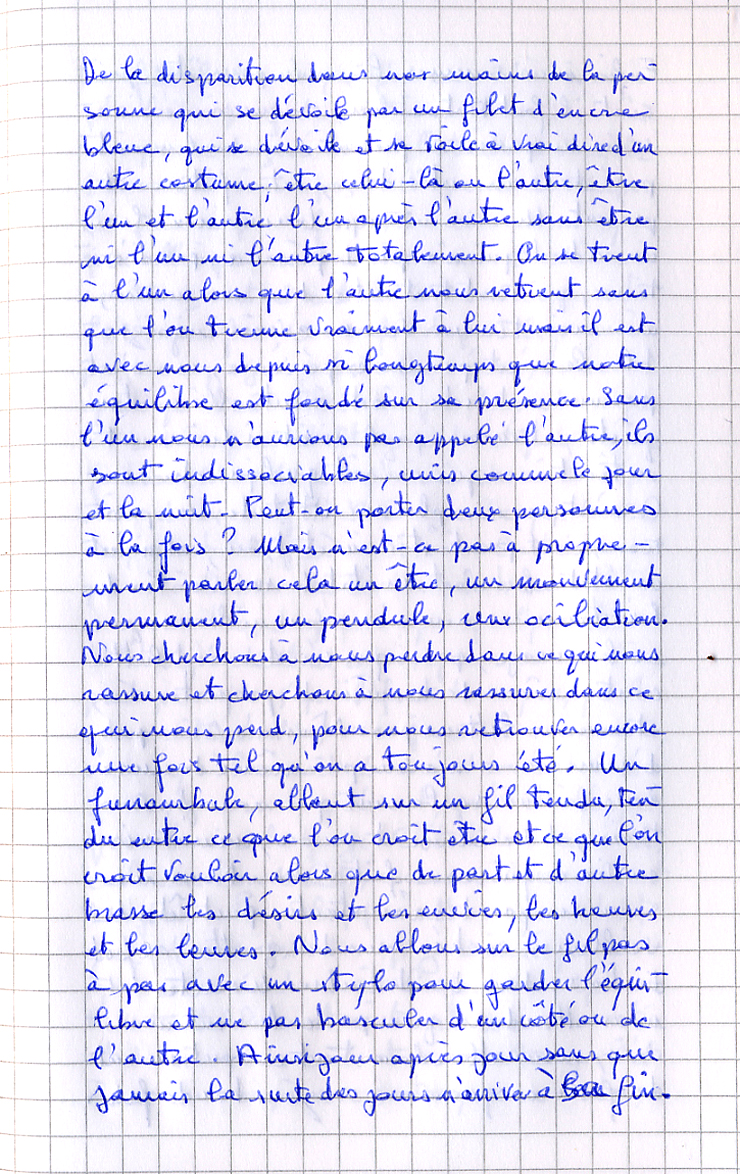 De la disparition dans nos mains de la per-
sonne qui se dévoile par un filet d'encre
bleue, qui se dévoile et se voile à vrai dire d'un
autre costume, être celui-là ou l'autre, être
l'un et l'autre l'un après l'autre sans être
ni l'un ni l'autre totalement. On se tient
à l'un alors que l'autre nous retient sans
que l'on tienne vraiment à lui mais il est
avec nous depuis si longtemps que notre
équilibre est fondé sur sa présence. Sans
l'un nous n'aurions pas appelé l'autre, ils
sont indissociables, unis comme le jour
et la nuit. Peut-on porter deux personnes
à la fois ? Mais n'est-ce pas à propre-
ment parler cela un être, un mouvement
permanent, un pendule, une ociliation.
Nous cherchons à nous perdre dans ce qui nous
rassure et cherchons à nous rassurer dans ce
qui nous perd, pour nous retrouver encore
une fois tel qu'on a toujours été. Un
funambule, allant sur un fil tendu, ten-
du entre ce que l'on croit être et ce que l'on
croit vouloir alors que de part et d'autre
brasse les désirs et les envies, les heures
et les leures. Nous allons sur le fil pas
à pas avec un stylo pour garder l'équi-
libre et ne pas basculer d'un côté ou de
l'autre. Ainsi jour après jour sans que
jamais la suite des jours n'arrive à fin.